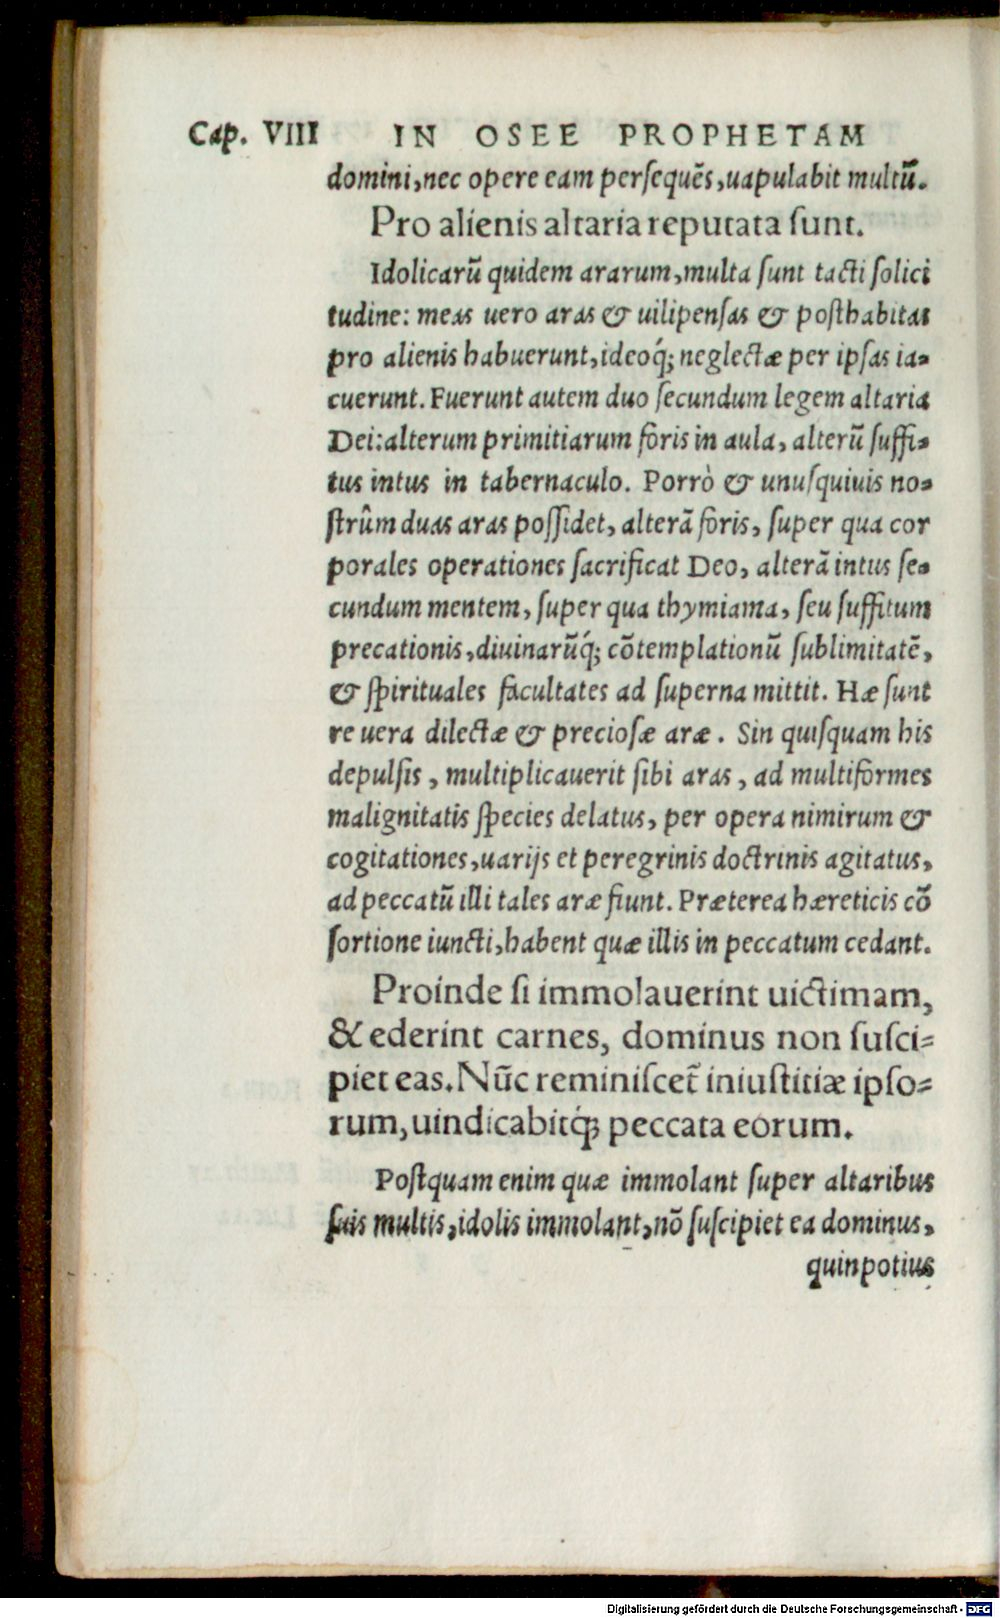 Cap. VIII IN OSEE PROPHETAM
domini, nec opere eam perſequẽs, uapulabit multũ.
Pro alienis altaria reputata ſunt.
Idolicarũ quidem ararum, multa ſunt tacti ſolici
tudine: meas uero aras & uilipenſas & poſthabitas
pro alienis habuerunt, ideoq́; neglectæ per ipſas ia-
cuerunt. Fuerunt autem duo ſecundum legem altaria
Dei: alterum primitiarum foris in aula, alterũ ſuffi-
tus intus in tabernaculo. Porrò & unuſquiuis no-
ſtrûm duas aras poſſidet, alterã foris, ſuper qua cor
porales operationes ſacrificat Deo, alterã intus ſe-
cundum mentem, ſuper qua thymiama, ſeu ſuffitum
precationis, diuinarũq́; cõtemplationũ ſublimitatẽ,
& ſpirituales facultates ad ſuperna mittit. Hæ ſunt
re uera dilectæ & precioſæ aræ. Sin quiſquam his
depulſis, multiplicauerit ſibi aras, ad multiformes
malignitatis ſpecies delatus, per opera nimirum &
cogitationes, uarijs et peregrinis doctrinis agitatus,
ad peccatũ illi tales aræ fiunt. Præterea hæreticis cõ
ſortione iuncti, habent quæ illis in peccatum cedant.
Proinde ſi immolauerint uictimam,
& ederint carnes, dominus non ſuſci-
piet eas. Nũc reminiſcet̃ iniuſtitiæ ipſo-
rum, uindicabitq́; peccata eorum.
Poſtquam enim quæ immolant ſuper altaribus
ſuis multis, idolis immolant, nõ ſuſcipiet ea dominus,
quinpotius
Digitalisierung gefördert durch die Deutsche Forschungsgemeinschaft - DFG